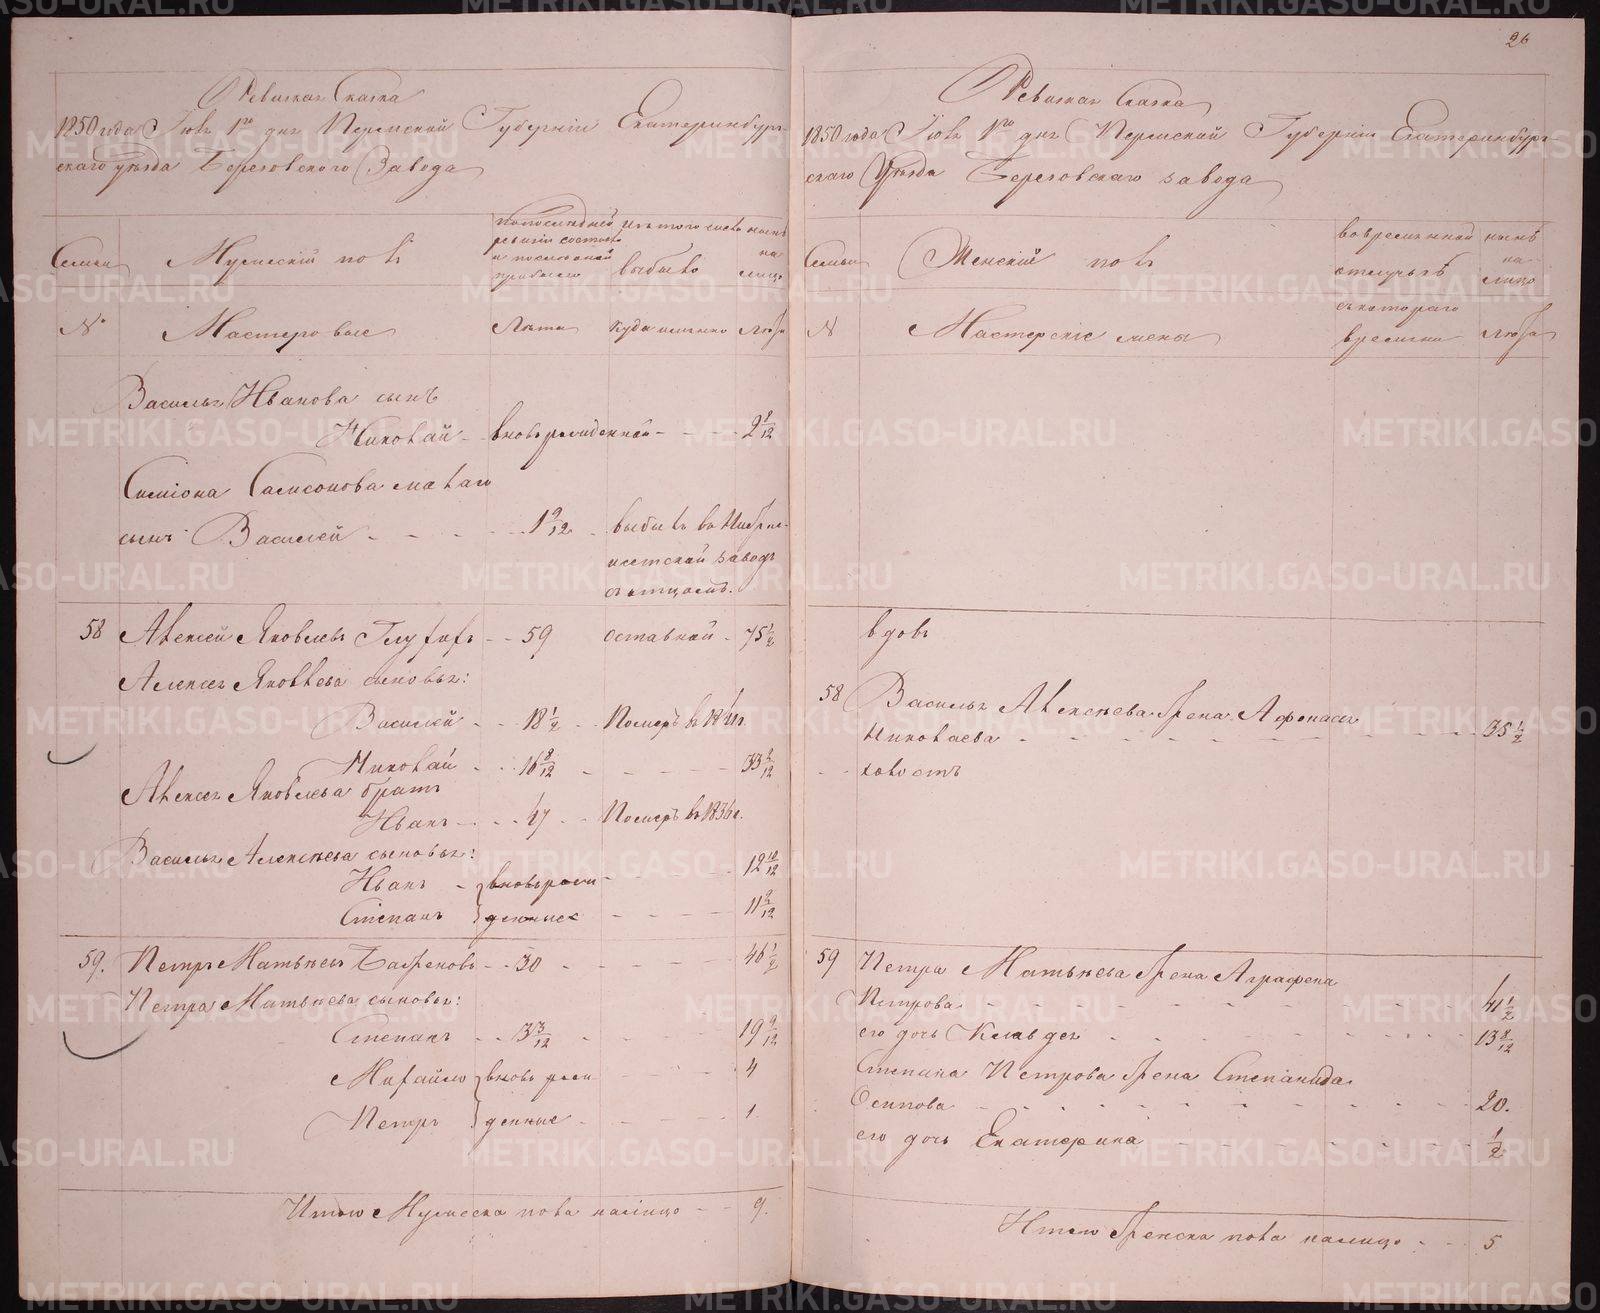 26
Ревижская Сказка
1850 года Июля 1го дня Пермской Губерніи Екатеринбург-
скаго уѣзда Березовского Завода
Семьи
Мужескій полъ
по последней ревизіи состояло и после оной прибыло
изъ того числа выбыло
нынѣ на лицо
№
Мастеровые
Лѣта
куда именно
Лѣта
Василья Иванова сынъ
Николай - вновьрожденной - 2 1/12
Симіона Самсонова малаго
сынъ Василей - 1 9/12 - выбылъ въ Нижне-
исетской заводъ
съ отцомъ.
58 Алексей Яковлевъ Глухихъ - 59 отставной - 75 1/2
Алексея Яковлева сыновья:
Василей - 18 1/2 - Померъ въ
Николай - 16 8/12 - 33 2/12
Алексея Яковлева братъ
Иванъ - 47 - Померъ въ 1836 г.
Василья Алексѣева сыновья:
Иванъ - вновьрож- - 12 10/12
Степанъ денные - 11 9/12
59. Петръ Матвѣевъ - 30 - 46 1/2
Петра Матвѣева сыновья:
Степанъ - 3 3/12 - 19 9/12
Михайло вновь рож- - 4
Петръ денные - 1
Итого Мужеска пола налицо - 9.
Ревижская Сказка
1850 года Июля 1го дня Пермской Губерніи Екатеринбург-
скаго Уѣзда Березовскаго завода
Семьи
Женскій полъ
во временной отлучкѣ
нынѣ на лицо
№
Мастерскіе жены
съ котораго времени
Лѣта
вдовъ
58 Василья Алексѣева жена Афонасья
Николаева - 35 1/2
холостъ
59 Петра Матвѣева жена Аграфена
Петрова - 41 1/2
его дочь Клавдея - 13 8/12
Степана Петрова жена Степанида
Осипова - 20.
его дочь Екатерина - 1/2
Итого Женска пола налицо - 5
METRIKI.GASO-URAL.RU